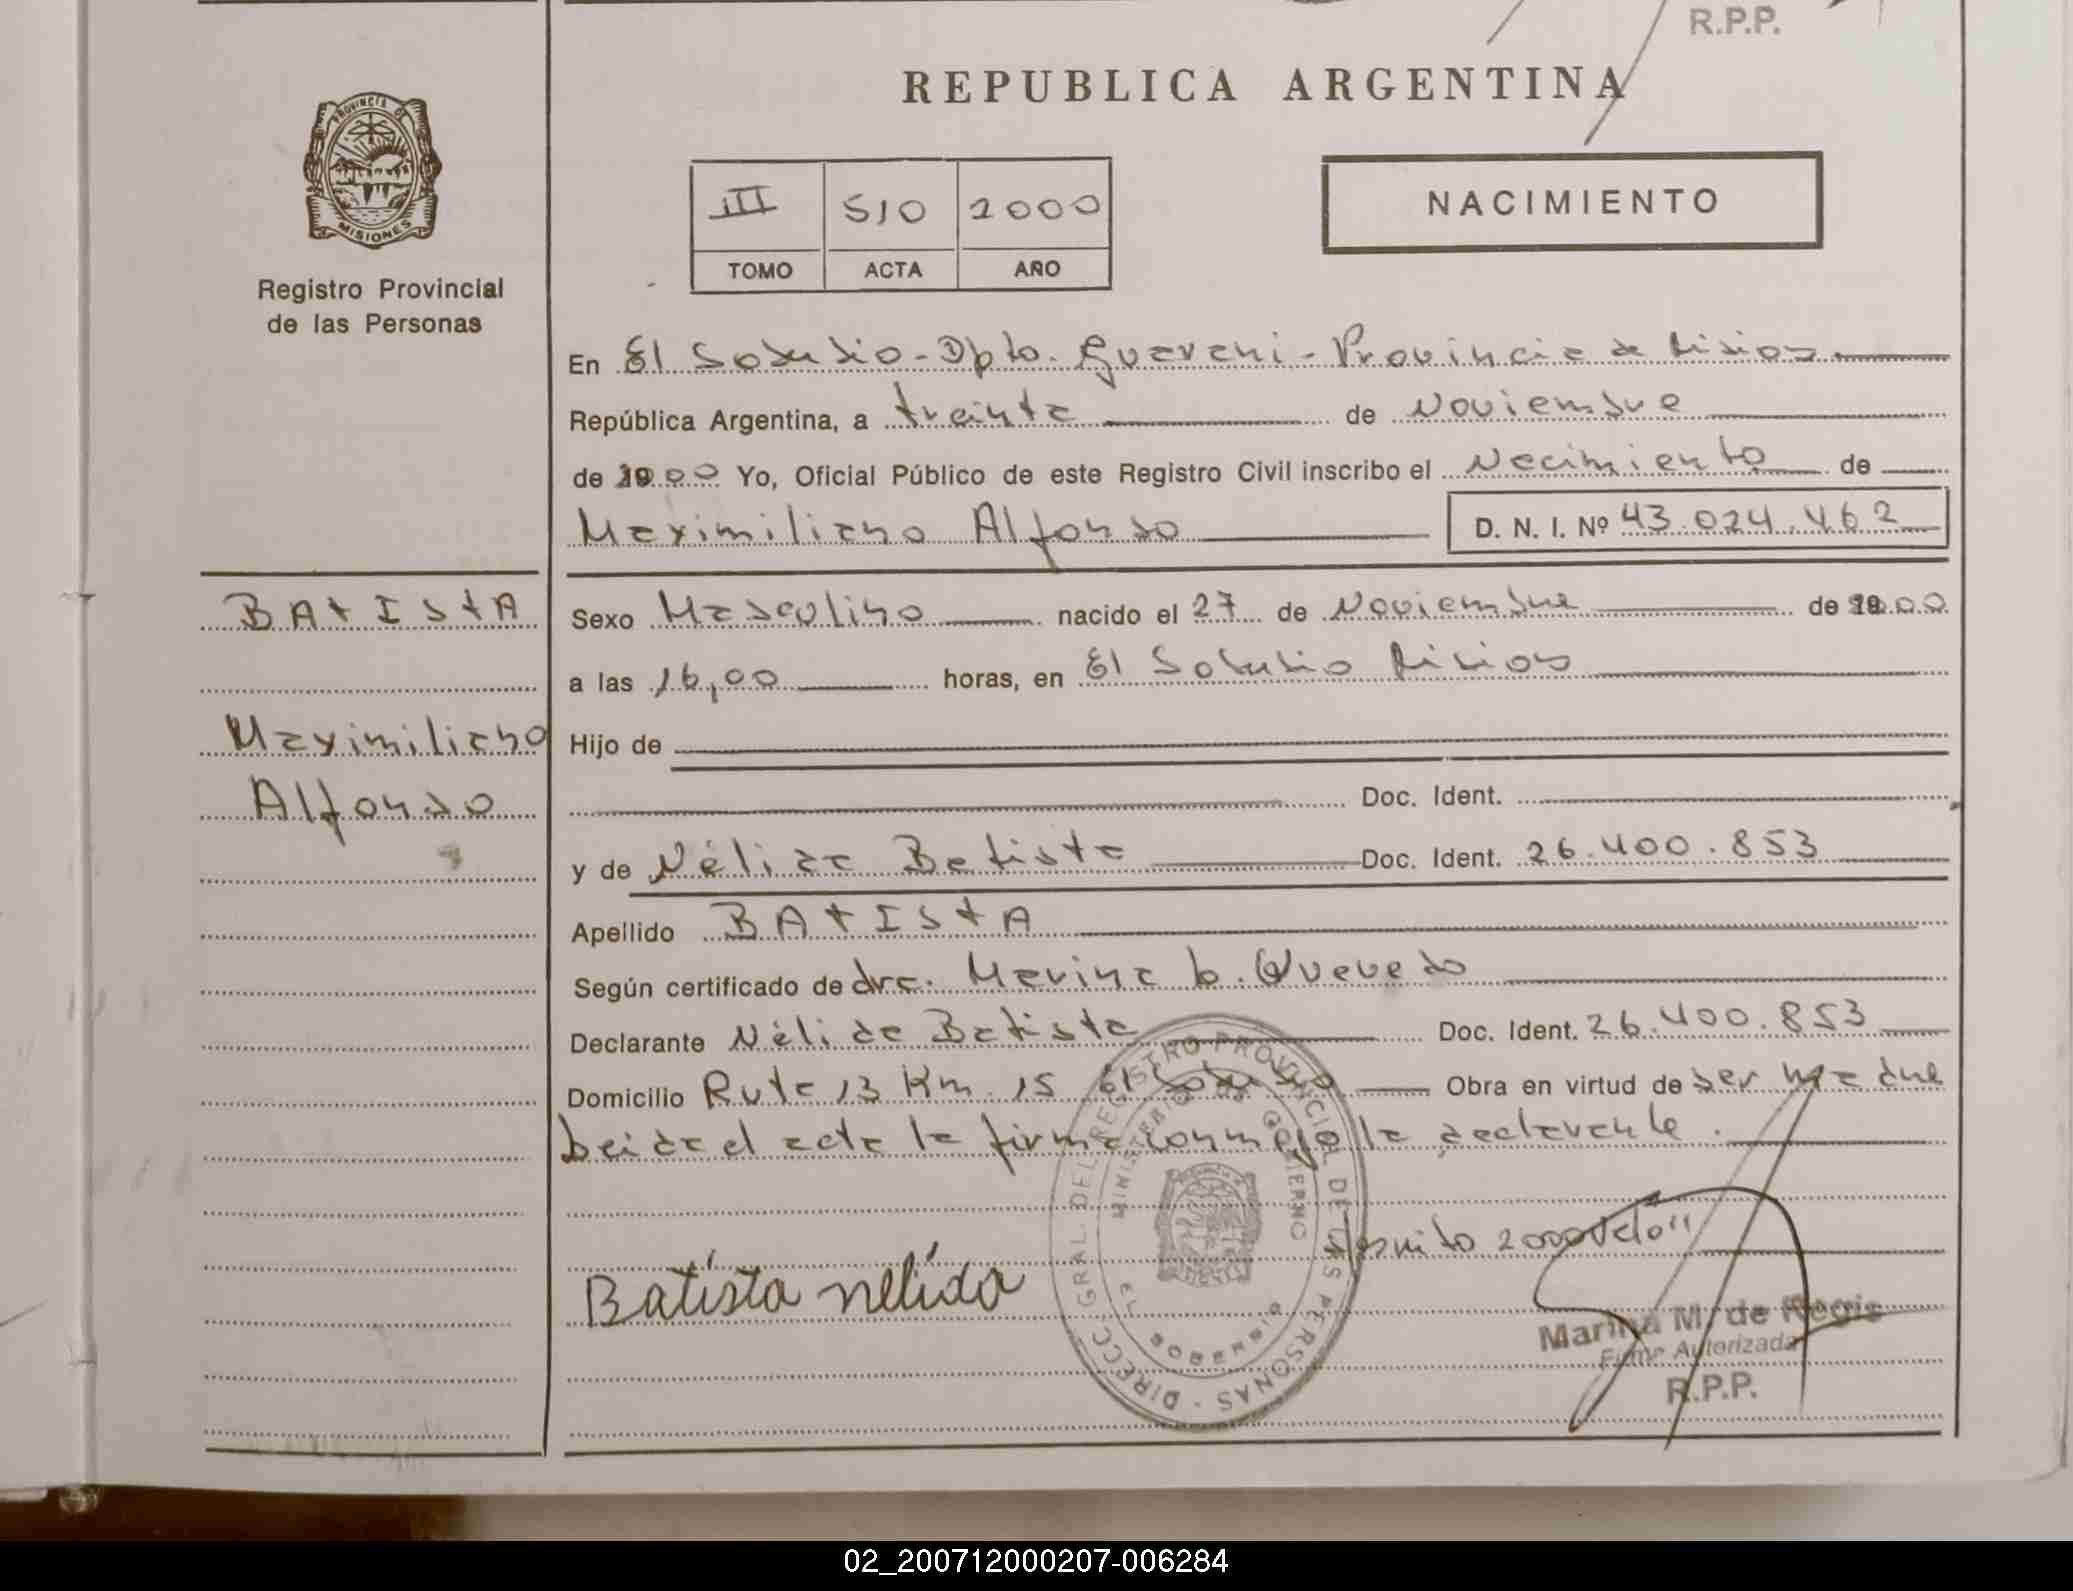 R.P.P.
REPUBLICA ARGENTINA
PROVINCIA DE
MISIONES
Registro Provincial
de las Personas
III 510 2000
TOMO ACTA AÑO
NACIMIENTO
En El Soberbio - Dpto. Guarani - Provincia de Misiones
República Argentina, a treinta de Noviembre
de 2000 Yo, Oficial Público de este Registro Civil inscribo el Nacimiento de
Maximiliano Alfonso D. N. I. Nº 43.024.462
BATISTA
Maximiliano
Alfonso
Sexo Masculino nacido el 27 de Noviembre de 2000
a las 16,00 horas, en El Soberbio Misiones
Hijo de
Doc. Ident.
y de Nélida Batista Doc. Ident. 26.400.853
Apellido BATISTA
Según certificado de dra. Marina b. Quevedo
Declarante Nélida Batista Doc. Ident. 26.400.853
Domicilio Ruta 13 Km 15 El Soberbio Obra en virtud de ser madre
Leida el acta la firma conmigo la declarante.
2000 Vale"
Batista nelida
DIRECC. GRAL. DEL REGISTRO PROVINCIAL DE LAS PERSONAS
MINISTERIO DE GOBIERNO
EL SOBERBIO
Marina M. de Regis
Firma Autorizada
R.P.P.
02_200712000207-006284